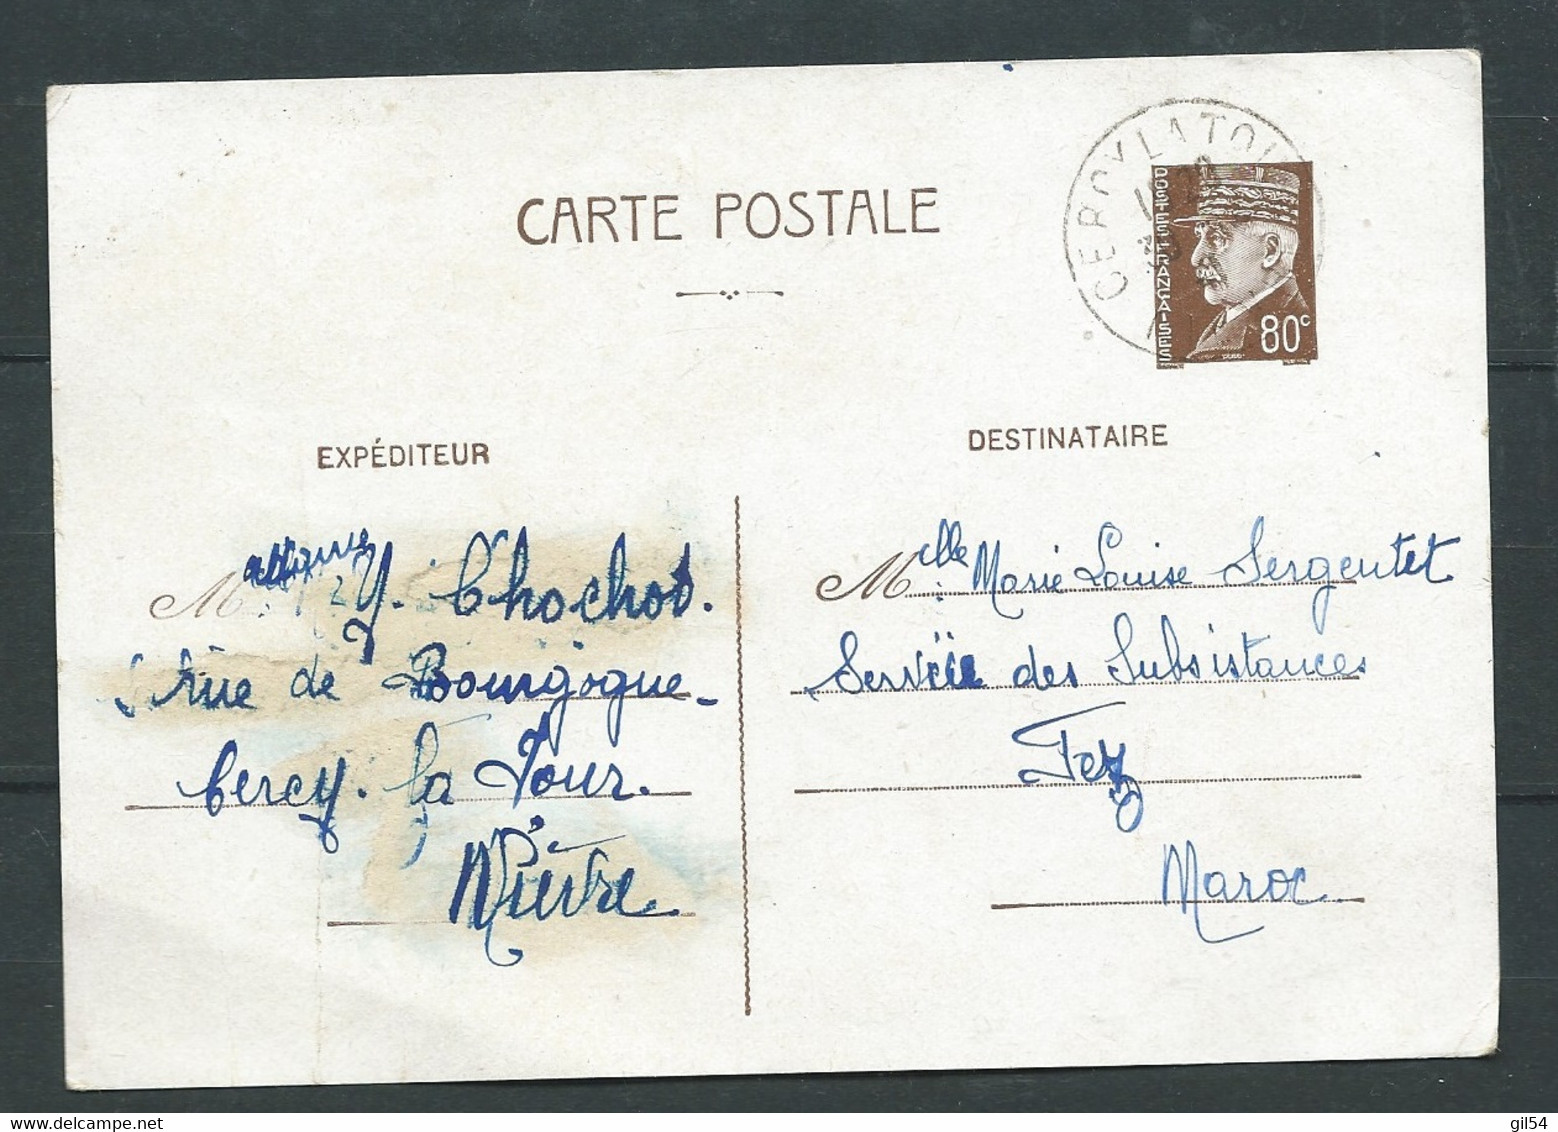 CARTE POSTALE
CERCY LA TOUR
POSTES FRANÇAISES
80c
EXPÉDITEUR
M Y. Chochot.
rue de Bourgogne_
Cercy. la Tour.
Nièvre
DESTINATAIRE
Melle Marie Louise Sergentet
Service des Subsistances
Fez
Maroc
gil54